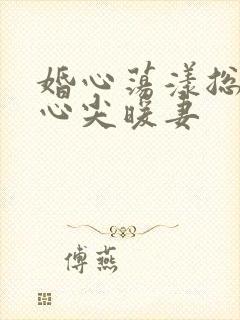 婚心荡漾总
心尖暖妻
傅燕